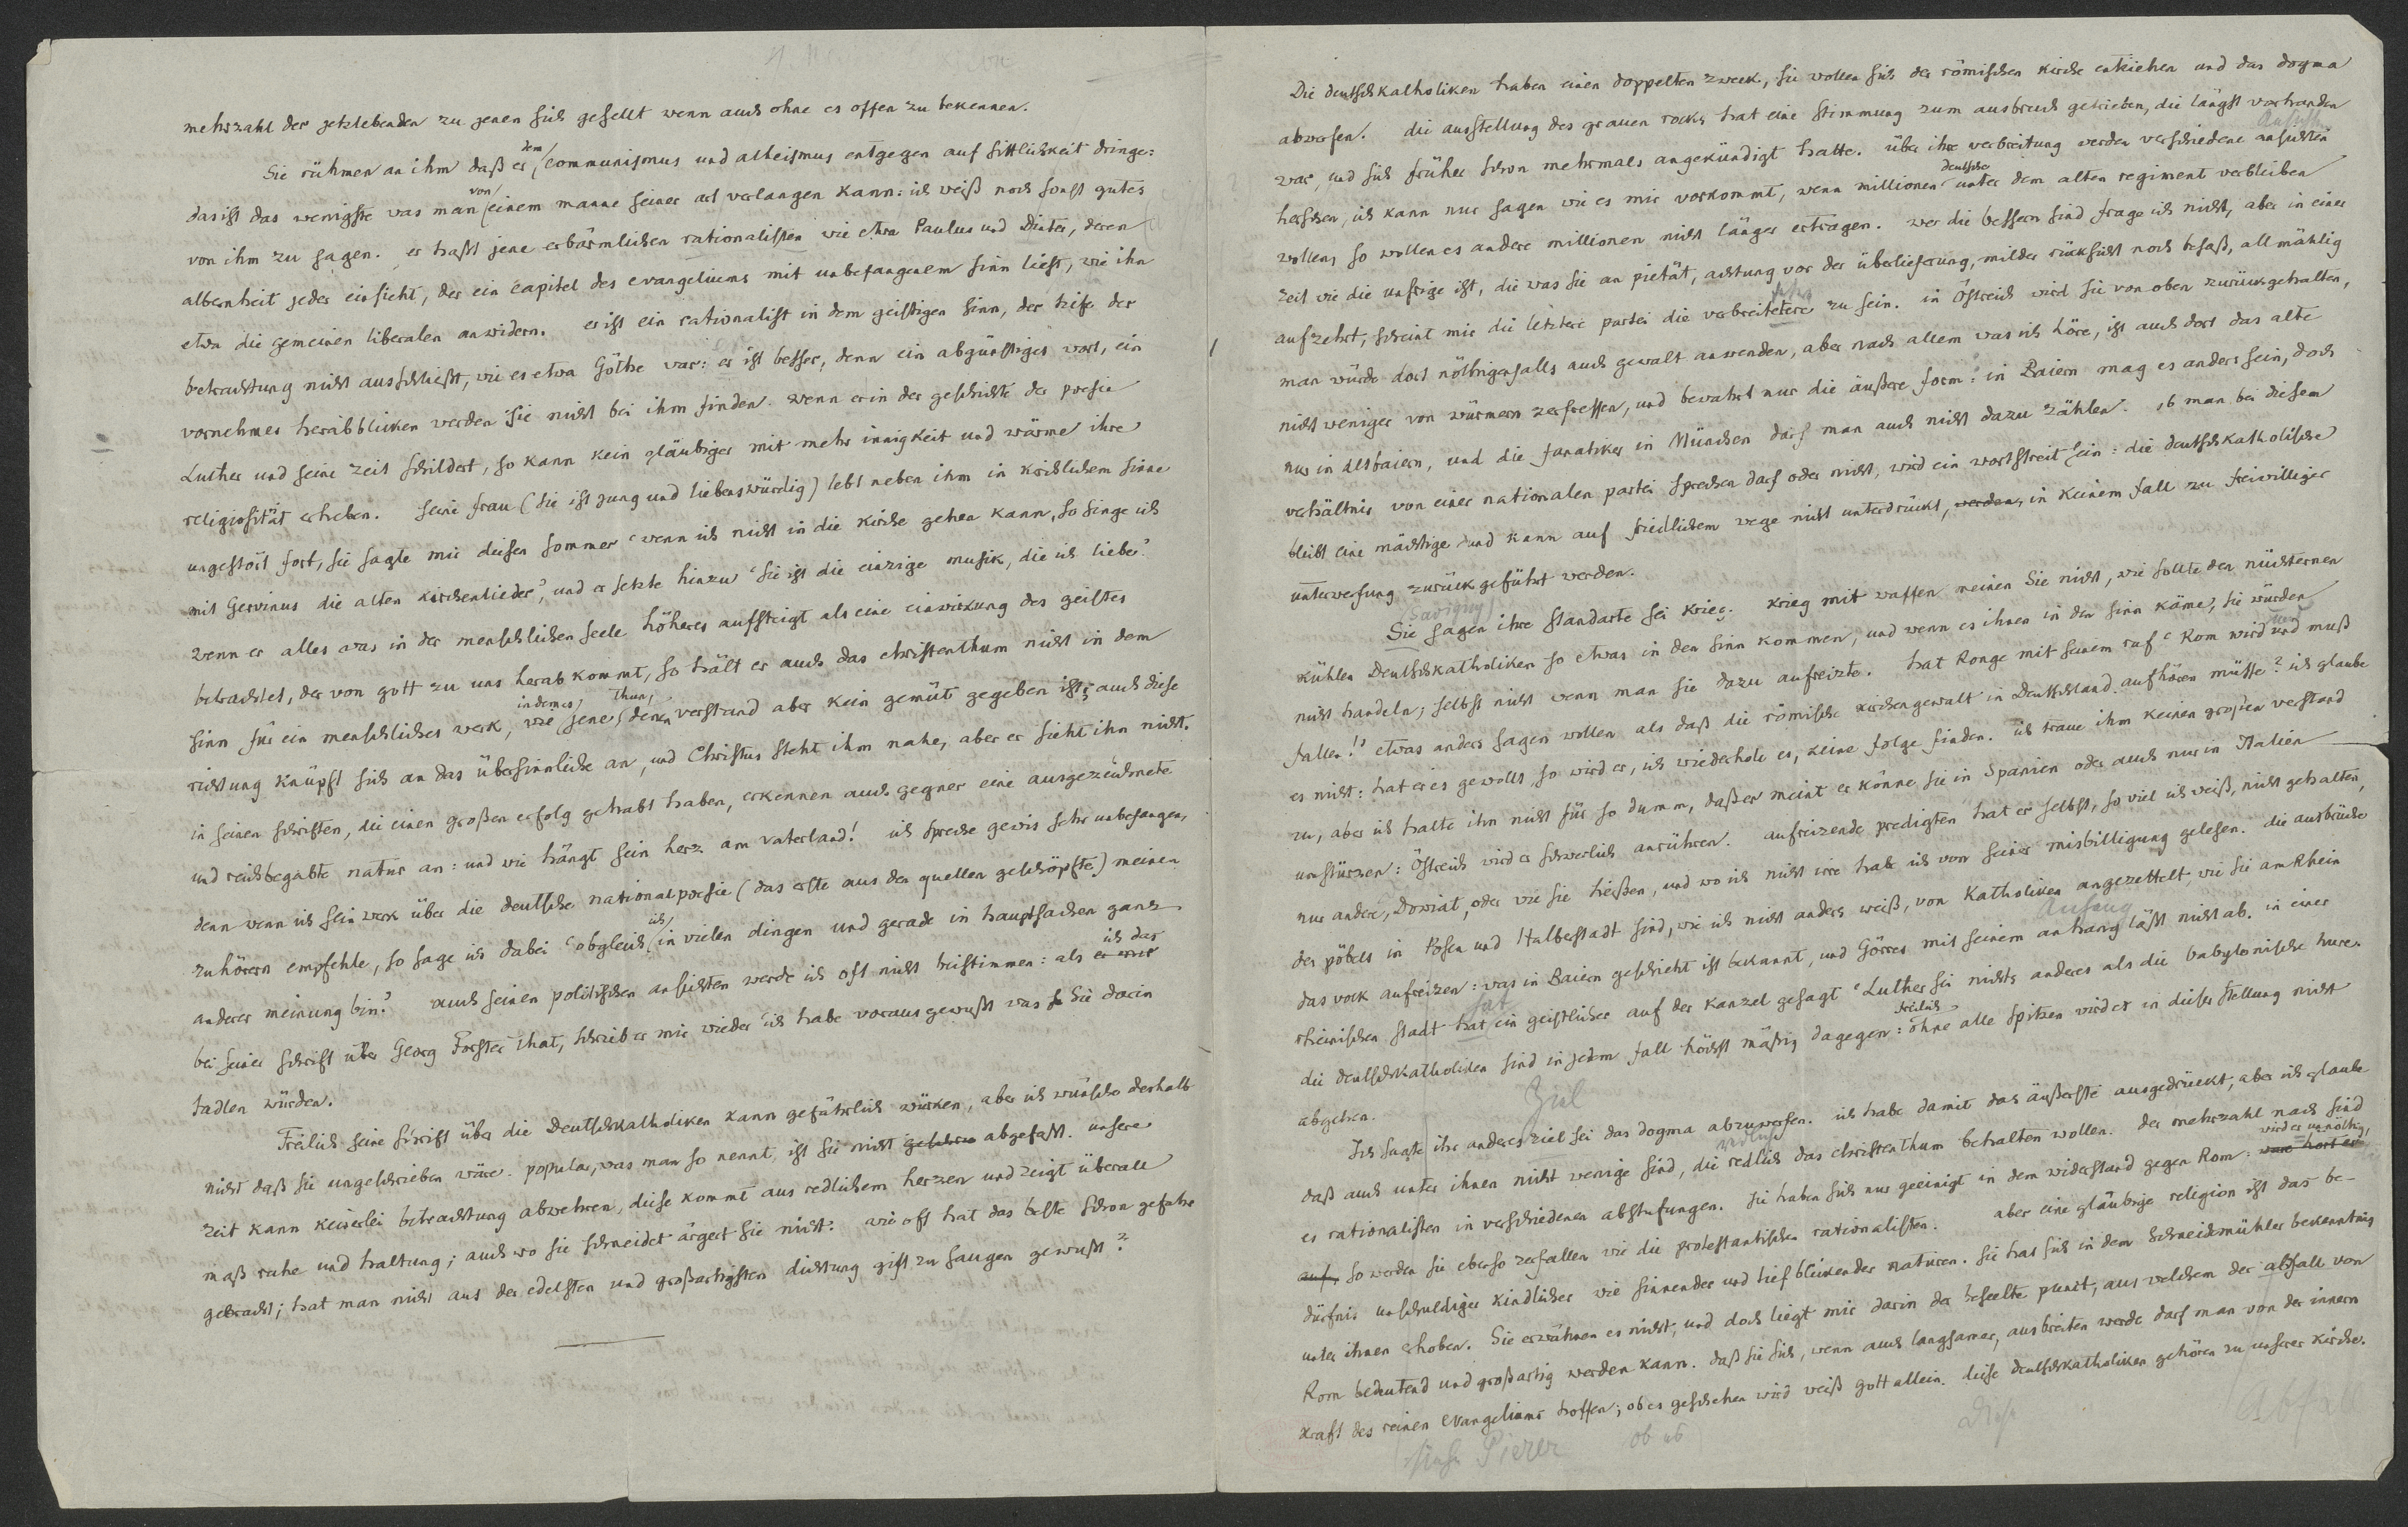 mehrzahl der jetztlebenden zu jenen sich gesellt wenn auch ohne es offen zu bekennen.
Sie rühmen an ihm daß er dem communismus und atheismus entgegen auf sittlichkeit dringe:
das ist das wenigste was man von einem manne seiner art verlangen kann: ich weiß noch sonst gutes
von ihm zu sagen. er haßt jene erbärmlichen rationalisten wie etwa Paulus und Dinter, deren
albernheit jeder einsieht, der ein capitel des evangeliums mit unbefangenem sinn liest, wie ihn
etwa die gemeinen liberalen anwidern. er ist ein rationalist in dem geistigen sinn, der tiefe der
betrachtung nicht ausschließt, wie es etwa Göthe war: er ist besser, denn ein abgünstiges wort, ein
vornehmes herabblicken werden Sie nicht bei ihm finden. wenn er in der geschichte der poesie
Luther und seine zeit schildert, so kann kein gläubiger mit mehr innigkeit und wärme ihre
religiosität erheben. seine frau (sie ist jung und liebenswürdig) lebt neben ihm in kirchlichem sinne
ungestört fort, sie sagte mir diesen sommer 'wenn ich nicht in die kirche gehen kann, so singe ich
mit Gervinus die alten kirchenlieder', und er setzte hinzu 'sie ist die einzige musik, die ich liebe'.
wenn er alles was in der menschlichen seele höheres aufsteigt als eine einwirkung des geistes
betrachtet, der von gott zu uns herab kommt, so hält er auch das christenthum nicht in dem
sinn für ein menschliches werk, wie indemes jene thun, denen verstand aber kein gemüt gegeben ist; auch diese
richtung knüpft sich an das übersinnliche an, und Christus steht ihm nahe, aber er sieht ihn nicht.
in seinen schriften, die einen großen erfolg gehabt haben, erkennen auch gegner eine ausgezeichnete
und reichbegabte natur an: und wie hängt sein herz am vaterland! ich spreche gewis sehr unbefangen,
denn wenn ich sein werk über die deutsche nationalpoesie (das erste aus den quellen geschöpfte) meinen
zuhörern empfehle, so sage ich dabei 'obgleich ich in vielen dingen und gerade in hauptsachen ganz
anderer meinung bin'. auch seinen politischen ansichten werde ich oft nicht beistimmen: als ich das
bei seiner schrift über Georg Forster that, schrieb er mir wieder 'ich habe voraus gewußt was Sie darin
tadlen würden.'
Freilich seine schrift über die Deutschkatholiken kann gefährlich würken, aber ich wünsche deshalb
nicht daß sie ungeschrieben wäre. populär, was man so nennt, ist sie nicht abgefaßt. unsere
zeit kann keinerlei betrachtung abwehren, diese kommt aus redlichem herzen und zeigt überall
maß ruhe und haltung; auch wo sie schneidet ärgert sie nicht: wie oft hat das beste schon gefahr
gebracht; hat man nicht aus der edelsten und großartigsten dichtung gift zu saugen gewußt?
Die deutschkatholiken haben einen doppelten zweck, sie wollen sich der römischen kirche entziehen und das dogma
abwerfen. die ausstellung des grauen rocks hat eine stimmung zum ausbruch getrieben, die längst vorhanden
war, und sich früher schon mehrmals angekündigt hatte. über ihre verbreitung werden verschiedene ansichten
herschen, ich kann nur sagen wie es mir vorkommt, wenn millionen deutsche unter dem alten regiment verbleiben
wollen, so wollen es andere millionen nicht länger ertragen. wer die bessern sind frage ich nicht, aber in einer
zeit wie die unsrige ist, die was sie an pietät, achtung vor der überlieferung, milder rücksicht noch besaß, allmählig
aufzehrt, scheint mir die letztere partei die verbreitetere zu sein. in Östreich wird sie von oben zurückgehalten,
man würde dort nöthigenfalls auch gewalt anwenden, aber nach allem was ich höre, ist auch dort das alte
nicht weniger von würmern zerfressen, und bewahrt nur die äußere form: in Baiern mag es anders sein, doch
nur in Altbaiern, und die fanatiker in München darf man auch nicht dazu zählen. ob man bei diesem
verhältnis von einer nationalen partei sprechen darf oder nicht, wird ein wortstreit sein: die deutschkatholische
bleibt eine mächtige und kann auf friedlichem wege nicht unterdrückt, werden, in keinem fall zu freiwilliger
unterwerfung zurückgeführt werden.
(Savigny)
Sie sagen ihre standarte sei krieg. krieg mit waffen meinen Sie nicht, wie sollte den nüchternen
kühlen Deutschkatholiken so etwas in den sinn kommen, und wenn es ihnen in den sinn käme, sie würden
nicht handeln; selbst nicht wenn man sie dazu aufreizte. hat Ronge mit seinem ruf 'Rom wird und muß
fallen!' etwas anders sagen wollen als daß die römische kirchengewalt in Deutschland aufhören müsse? ich glaube
es nicht: hat er es gewollt, so wird er, ich wiederhole es, keine folge finden. ich traue ihm keinen großen verstand
zu, aber ich halte ihn nicht für so dumm, daß er meint er könne sie in Spanien oder auch nur in Italien
umstürzen: Östreich wird er schwerlich anrühren. aufreizende predigten hat er selbst, so viel ich weiß, nicht gehalten,
nur andere, Dowiat, oder wie sie heißen, und wo ich nicht irre habe ich von seiner misbilligung gelesen. die ausbrüche
des pöbels in Posen und Halberstadt sind, wie ich nicht anders weiß, von Katholiken angezettelt, wie sie am Rhein
das volk aufreizen: was in Baiern geschieht ist bekannt, und Görres mit seinem anhang läßt nicht ab. in einer
rheinischen stadt hat ein geistlicher auf der kanzel gesagt 'Luther sei nichts anderes als die babylonische hure.
die deutschkatholiken sind in jedem fall höchst mäßig dagegen: freilich ohne alle spitzen wird es in dieser stellung nicht
abgehen.
Ziel
Ich sagte ihr anderes ziel sei das dogma abzuwerfen. ich habe damit das äußerste ausgedrückt, aber ich glaube
daß auch unter ihnen nicht wenige sind, die redlich das christenthum behalten wollen. der mehrzahl nach sind
es rationalisten in verschiedenen abstufungen. sie haben sich nur geeinigt in dem widerstand gegen Rom: wird er unnöthig,
auf, so werden sie ebenso zerfallen wie die protestantischen rationalisten. aber eine gläubige religion ist das be-
dürfnis unschuldiger kindlicher wie sinnender und tief blickender naturen. sie hat sich in dem Schneidemühler bekenntnis
unter ihnen erhoben. Sie erwähnen es nicht, und doch liegt mir darin der beseelte punct, aus welchem der abfall von
Rom bedeutend und großartig werden kann. daß sie sich, wenn auch langsamer, ausbreiten werde darf man von der innern
kraft des reinen evangeliums hoffen; ob es geschehen wird weiß gott allein. diese deutschkatholiken gehören zu unserer kirche.
ob es